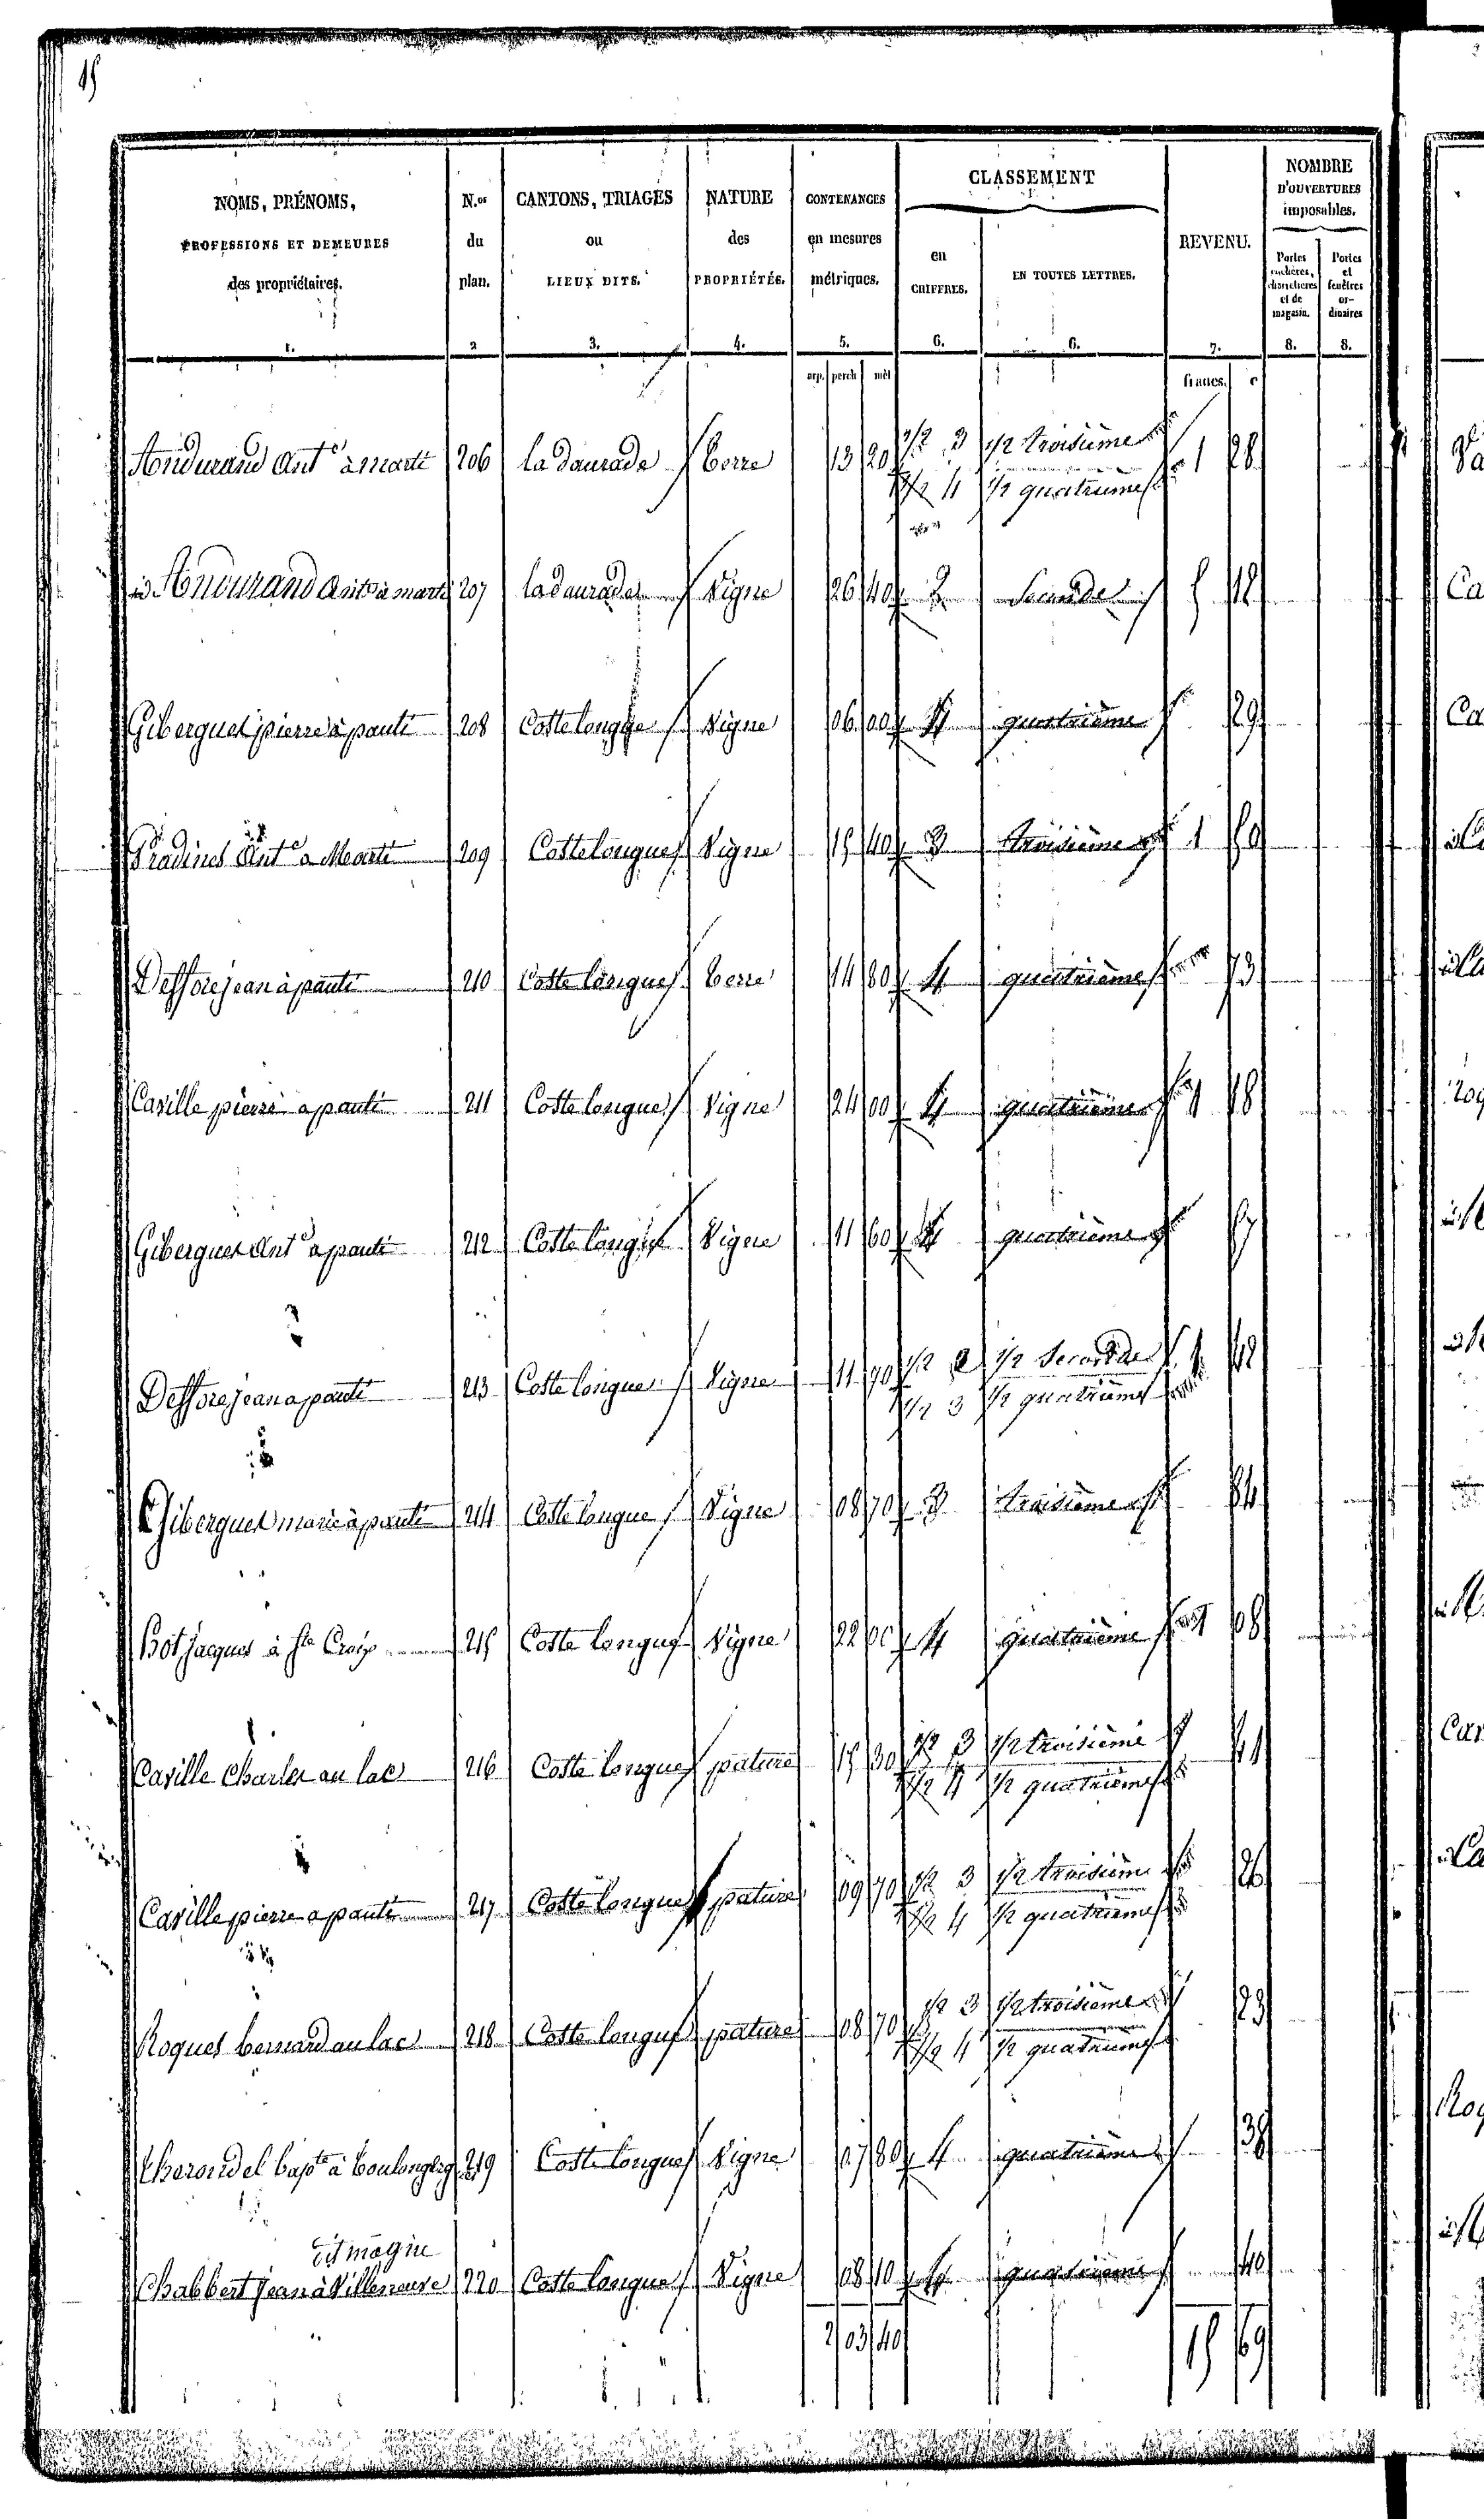 15
NOMS, PRÉNOMS, PROFESSIONS ET DEMEURES des propriétaires. N.os du plan. CANTONS, TRIAGES ou LIEUX DITS. NATURE des PROPRIÉTÉS. CONTENANCES en mesures métriques. CLASSEMENT en CHIFFRES. EN TOUTES LETTRES. REVENU. NOMBRE D'OUVERTURES imposables. Portes cochères, charretières et de magasin. Portes et fenêtres ordinaires
1. 2 3. 4. 5. 6. 6. 7. 8. 8.
arp. perch. mèt francs. c
Andurand Ant.e à Marti 206 la daurade terre 13 20 1/2 3 1/2 troisième 1 28
1/2 4 1/2 quatrième
id Andurand Ant.e à marti 207 la daurade Vigne 26 40 2 Seconde
Giberguet pierre à pauti 208 Coste longue Vigne 06 00 4 quatrième 29
Pradines Ant.e à Marti 209 Coste longue Vigne 15 40 3 troisième 1 50
Deffore jean à pauti 210 Coste longue terre 14 80 4 quatrième 73
Caville pierre a pauti 211 Coste longue Vigne 24 00 4 quatrième 1 18
Giberguet Ant.e a pauti 212 Coste longue Vigne 11 60 4 quatrième 57
Deffore jean a pauti 213 Coste longue Vigne 11 70 1/2 2 1/2 Seconde
1/2 3 1/2 quatrième
Giberguet marie à pauti 214 Coste longue Vigne 08 70 3 troisième 84
Bot jacques à Ste Croix 215 Coste longue Vigne 22 00 4 quatrième 1 08
Caville Charles au lac 216 Coste longue pature 15 30 1/2 3 1/2 troisième 41
1/2 4 1/2 quatrième
Caville pierre a pauti 217 Coste longue pature 09 70 1/2 3 1/2 troisième 26
1/2 4 1/2 quatrième
Roques bernard au lac 218 Coste longue pature 08 70 1/2 3 1/2 troisième 23
1/2 4 1/2 quatrième
Therondel bap.te à 219 Coste longue Vigne 07 80 4 quatrième 38
dit magine
Chabbert jean à Villeneuve 220 Coste longue Vigne 08 10 4 quatrième 40
2 03 40 15 69